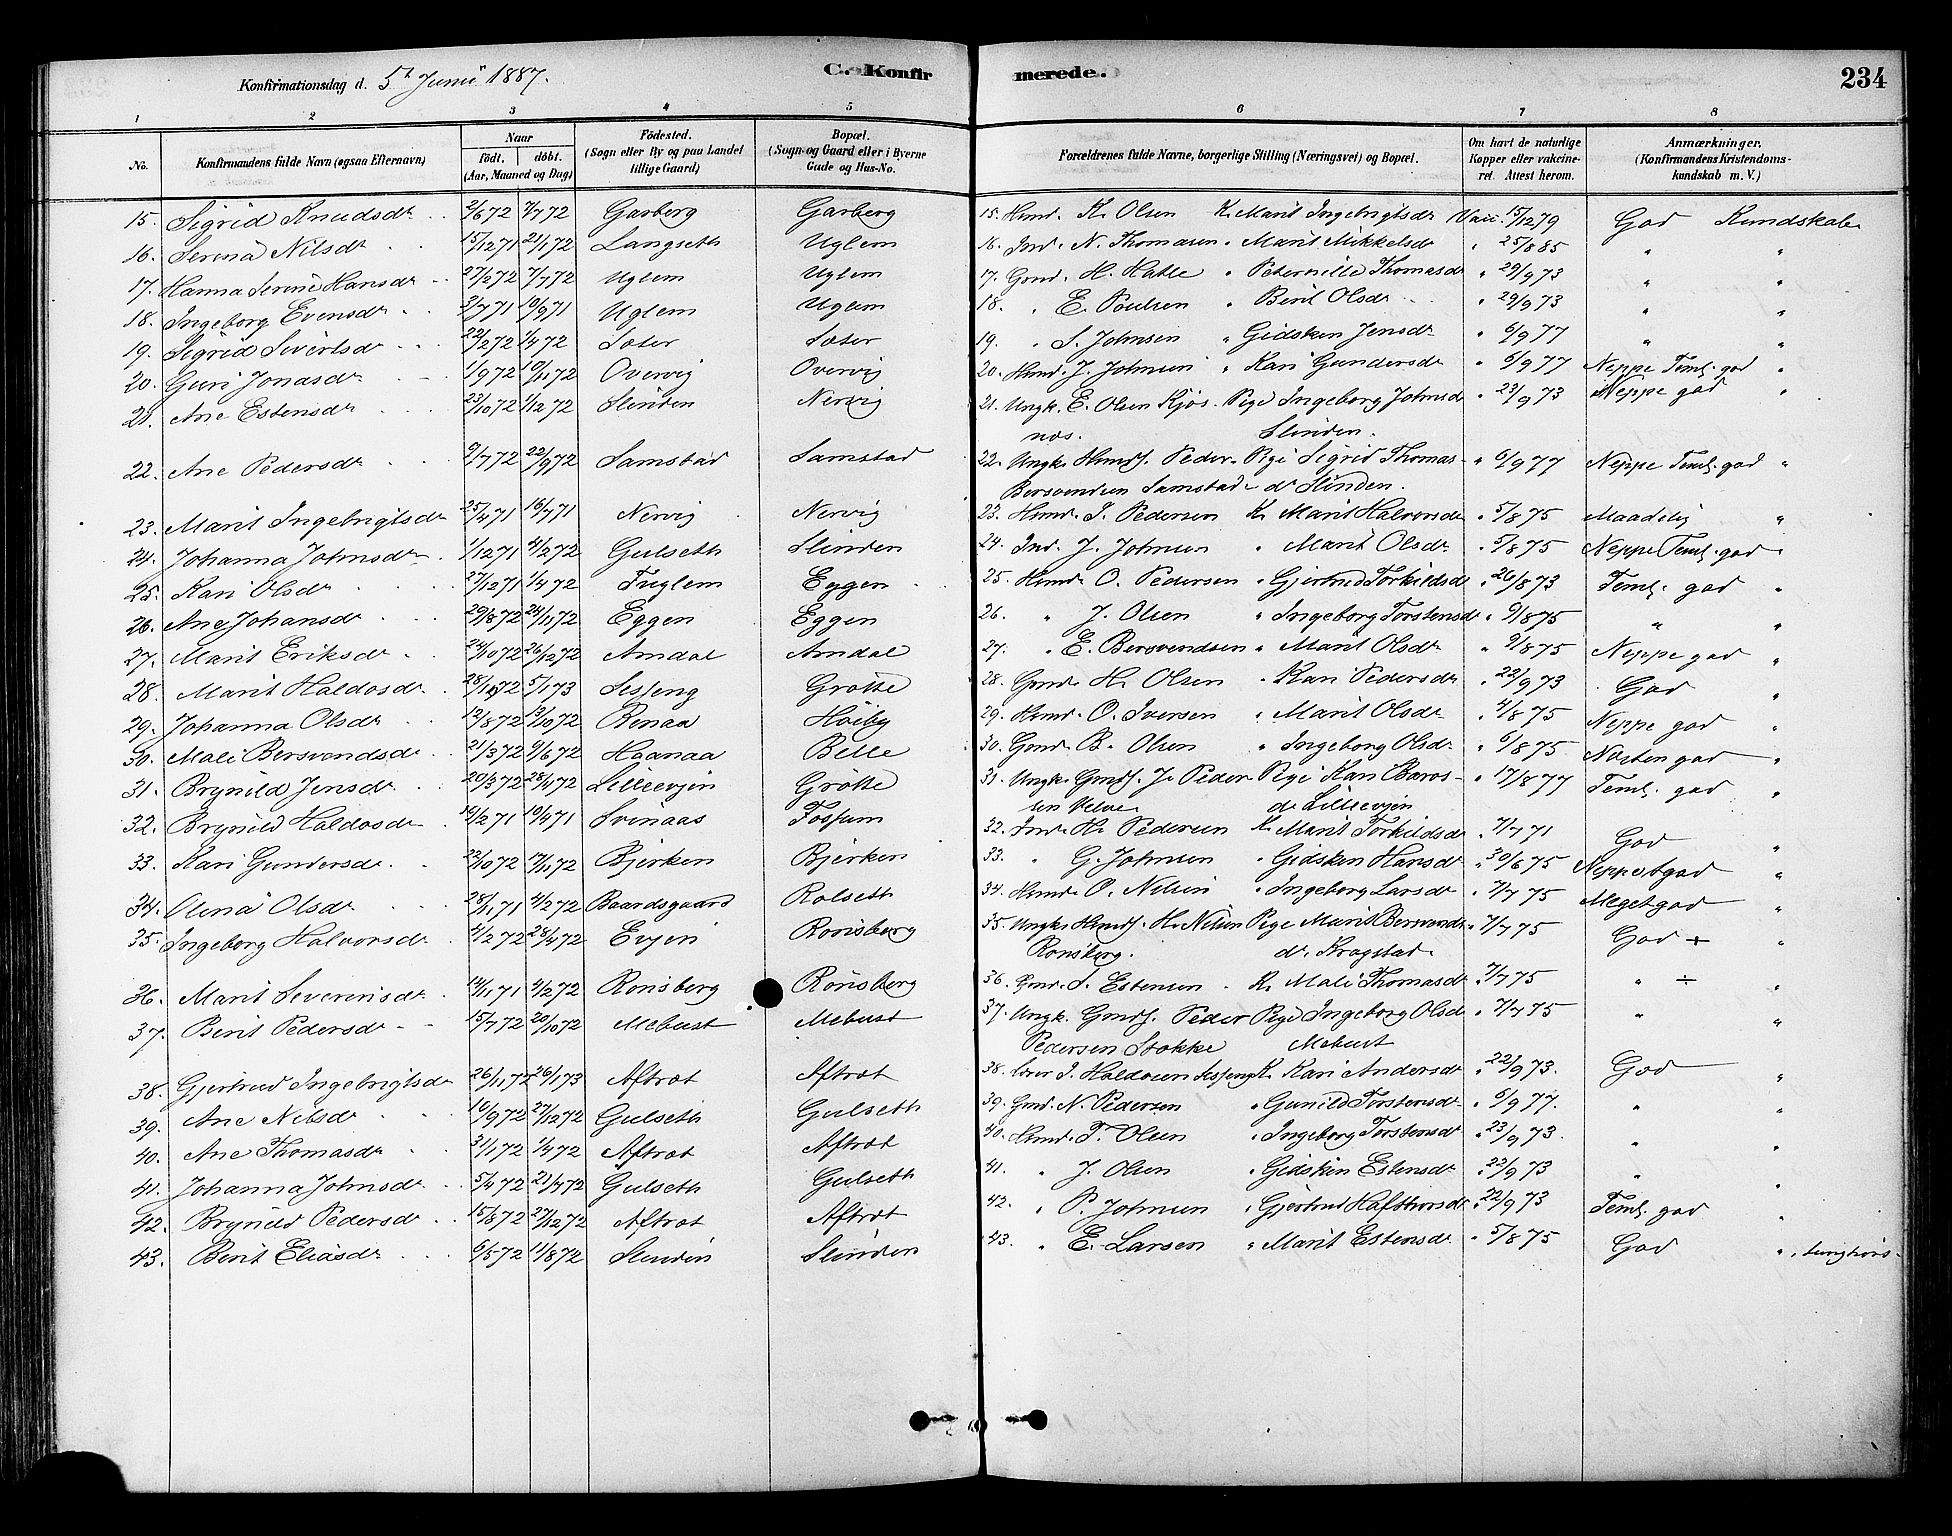 Konfirmationsdag d. 5t Juni 1887.
C. Konfirmerede.
234
1 2 3 4 5 6 7 8
No. Konfirmandens fulde Navn (ogsaa Efternavn) Naar født, døbt. (Aar, Maaned og Dag) Fødested. (Sogn eller By og paa Landet tillige Gaard) Bopæl. (Sogn og Gaard eller i Byerne Gade og Hus-No. Forældrenes fulde Navne, borgerlige Stilling (Næringsvei) og Bopæl. Om havt de naturlige Kopper eller vakcineret. Attest herom. Anmærkninger. (Konfirmandens Kristendomskundskab m. V.)
15. Sigrid Knudsdr 2/6 72 7/7 72 Garberg Garberg 15. Husmd. K. Olsen K. Marit Ingebrigtsdr Vacc. 15/12 79 God Kundskab
16. Serena Nilsdr 15/12 71 21/1 72 Langseth Uglem 16. Ind. N. Thomasen " Marit Mikkelsdr " 25/8 85 " "
17. Hanna Serine Hansdr 27/2 72 7/7 72 Uglem Uglem 17. Gmd. H. Halle " Peternille Thomasdr " 29/9 73 " "
18. Ingeborg Evensdr 3/7 71 10/9 71 Uglem Uglem 18. " E. Poulsen " Berit Olsdr " 29/9 73 " "
19. Sigrid Sivertsdr 22/2 72 1/4 72 Sæter Sæter 19. " S. Johnsen " Gidsken Jensdr " 6/9 77 " "
20. Guri Jonasdr 1/9 72 10/11 72 Overvig Overvig 20. Husmd. J. Johnsen " Kari Gundersdr " 6/9 77 Neppe Teml. god "
21. Ane Estensdr 23/10 72 1/12 72 Slinden Nervig 21. Ungk. E. Olsen Kjøs- Pige Ingeborg Johnsdr " 23/9 73 Neppe god "
næs. Slinden.
22. Ane Pedersdr 9/7 72 22/9 72 Samstad Samstad 22. Ungk. Husmdf. Peder Pige Sigrid Thomas- " 6/9 77 Neppe Teml. god "
Bersvendsen Samstad dr Slinden.
23. Marit Ingebrigtsdr 25/4 71 16/7 71 Nervig Nervig 23. Husmd. I. Pedersen K. Marit Halvorsdr " 5/8 75 Maadelig "
24. Johanna Johnsdr 1/12 71 4/2 72 Gulseth Slinden 24. Ind. J. Johnsen " Marit Olsdr " 5/8 75 Neppe Teml. god "
25. Kari Olsdr 27/12 71 1/4 72 Fuglem Eggen 25. Husmd. O. Pedersen " Gjertrud Torkildsdr " 26/8 73 Teml. god "
26. Ane Johansdr 29/8 72 24/11 72 Eggen Eggen 26. " J. Olsen " Ingeborg Torstensdr " 9/8 75 " "
27. Marit Eriksdr 24/10 72 26/12 72 Amdal Amdal 27. " E. Bersvendsen " Marit Olsdr " 9/8 75 Neppe god "
28. Marit Haldosdr 5/1 73 Sesseng Grøtte 28. Gmd. H. Olsen " Kari Pedersdr " 22/9 73 God "
29. Johanna Olsdr 12/8 72 13/10 72 Renaa Høiby 29. Husmd. O. Iversen " Marit Olsdr " 4/8 75 Neppe god "
30. Mali Bersvendsdr 21/3 72 9/6 72 Haanaa Belle 30. Gmd. B. Olsen " Ingeborg Olsdr " 6/8 75 Næsten god "
31. Brynild Jensdr 20/3 72 28/4 72 Lillevjen Grøtte 31. Ungk. Gmdf. J. Peder- Pige Kari Baros- " 17/8 77 Teml. god "
sen Velve. dr Lillevjen
32. Brynild Haldosdr 19/2 71 10/4 71 Svinaas Fossum 32. Ind. H. Pedersen K. Marit Torkildsdr " 7/7 71 God "
33. Kari Gundersdr 22/10 72 17/11 72 Bjerken Bjerken 33. " G. Johnsen " Gidsken Hansdr " 30/6 75 Neppe tgod "
34. Olena Olsdr 28/11 71 4/2 72 Baardsgaard Rolseth 34. Husmd. O. Nilsen " Ingeborg Larsdr " 7/7 75 Meget god "
35. Ingeborg Halvorsdr 4/2 72 28/4 72 Evjen Rønsberg 35. Ungk. Husmdf. H. Nilsen Pige Marit Bersvends- " 7/7 75 God ÷ "
Rønsberg. dr Kragstad.
36. Marit Severinsdr 14/11 71 4/2 72 Rønsberg Rønsberg 36. Gmd. S. Estensen K. Mali Thomasdr " 7/7 75 " ÷ "
37. Berit Pedersdr 15/7 72 20/10 72 Mebust Mebust 37. Ungk. Gmdf. Peder Pige Ingeborg Olsdr " 7/7 75 " "
Pedersen Stokke Mebust
38. Gjertrud Ingebrigtsdr 26/11 72 26/1 73 Aftret Aftret 38. I. Haldosen Sesseng K. Kari Andersdr " 22/9 73. God "
39. Ane Nilsdr 10/9 72 27/12 72 Gulseth Gulseth 39. Gmd. N. Pedersen " Gunild Torstensdr " 6/9 77. " "
40. Ane Thomasdr 31/1 72 1/4 72 Aftret Aftret 40. Husmd. T. Olsen " Ingeborg Torstensdr " 23/9 73. " "
41. Johanna Johnsdr 5/4 72 21/4 72 Gulseth Gulseth 41. " J. Olsen " Gidsken Estensdr " 23/9 73 " "
42. Brynild Pedersdr 15/8 72 27/12 72 Aftret Aftret 42. " P. Johnsen " Gjertrud Hafthorsdr " 22/9 73 Teml. god "
43. Berit Eliasdr 6/5 72 11/8 72 Slinden Slinden 43. " E. Larsen " Marit Estensdr " 5/8 75 God ", tunghørs-